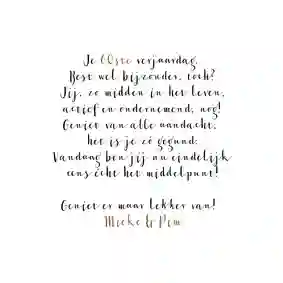 Je 60ste verjaardag.
Best wel bijzonder, toch?
Jij, zo midden in het leven,
actief en ondernemend, nog!
Geniet van alle aandacht,
het is je zó gegund:
Vandaag ben jij nu eindelijk
eens écht het middelpunt!

Geniet er maar lekker van!
Mieke & Pim